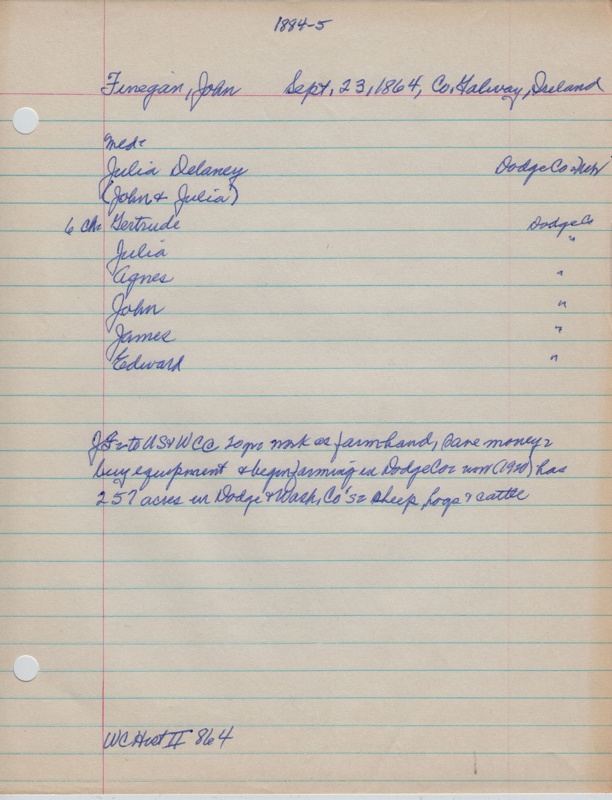 1884-5
Finegan, John Sept, 23, 1864, Co. Galway, Ireland
Med-
Julia Delaney Dodge Co Neb
(John & Julia)
6 Ch Gertrude Dodge Co
Julia "
Agnes "
John "
James "
Edward "
JF - to US & WCo 20 yr work as farmhand, save money =
buy equipment & begin farming in Dodge Co = now (1920) has
257 acres in Dodge & Wash, Co's = sheep, hogs & cattle
WC Hist II 864